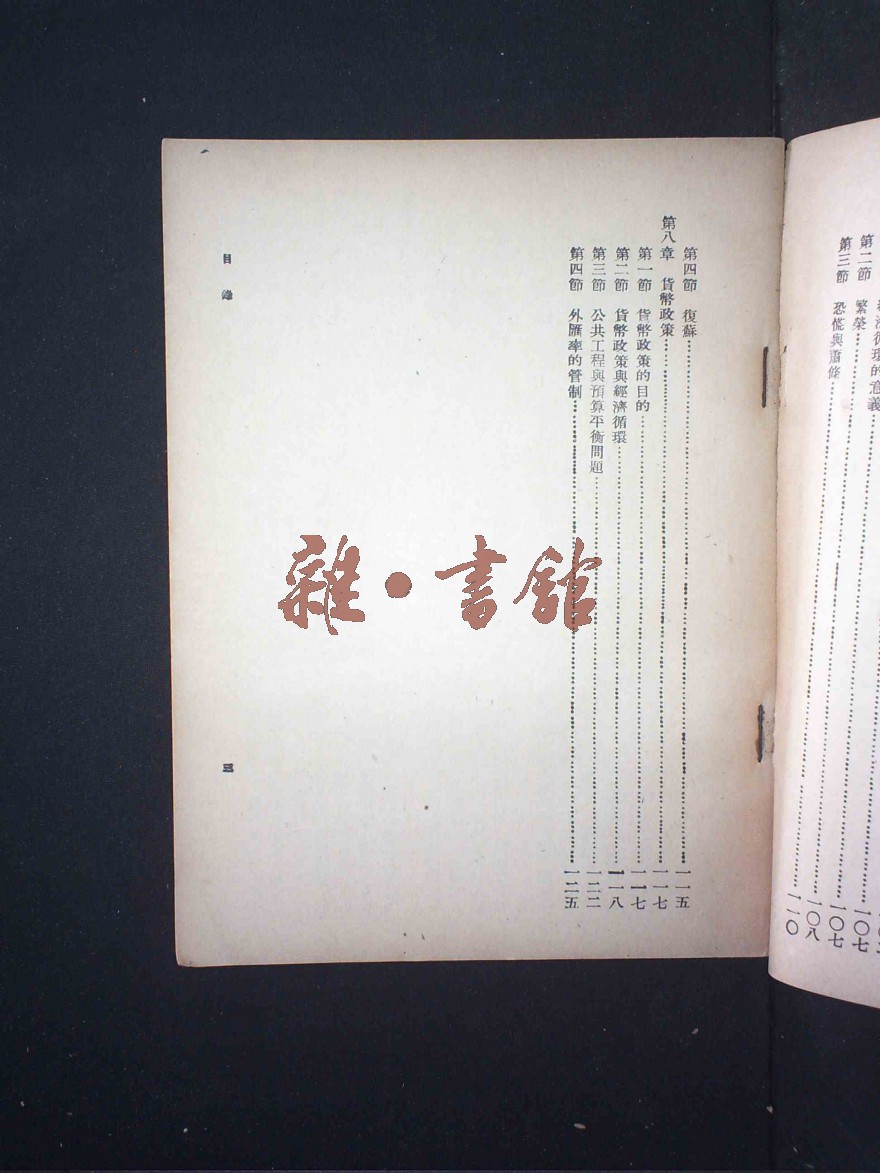 濟循環的意義……一〇七
第二節 繁榮……一〇八
第三節 恐慌與蕭條……一一〇
第四節 復蘇……一一五
第八章 貨幣政策……一一七
第一節 貨幣政策的目的……一一七
第二節 貨幣政策與經濟循環……一一八
第三節 公共工程與預算平衡問題……一二二
第四節 外匯率的管制……一二五
目錄
三
雜·書館